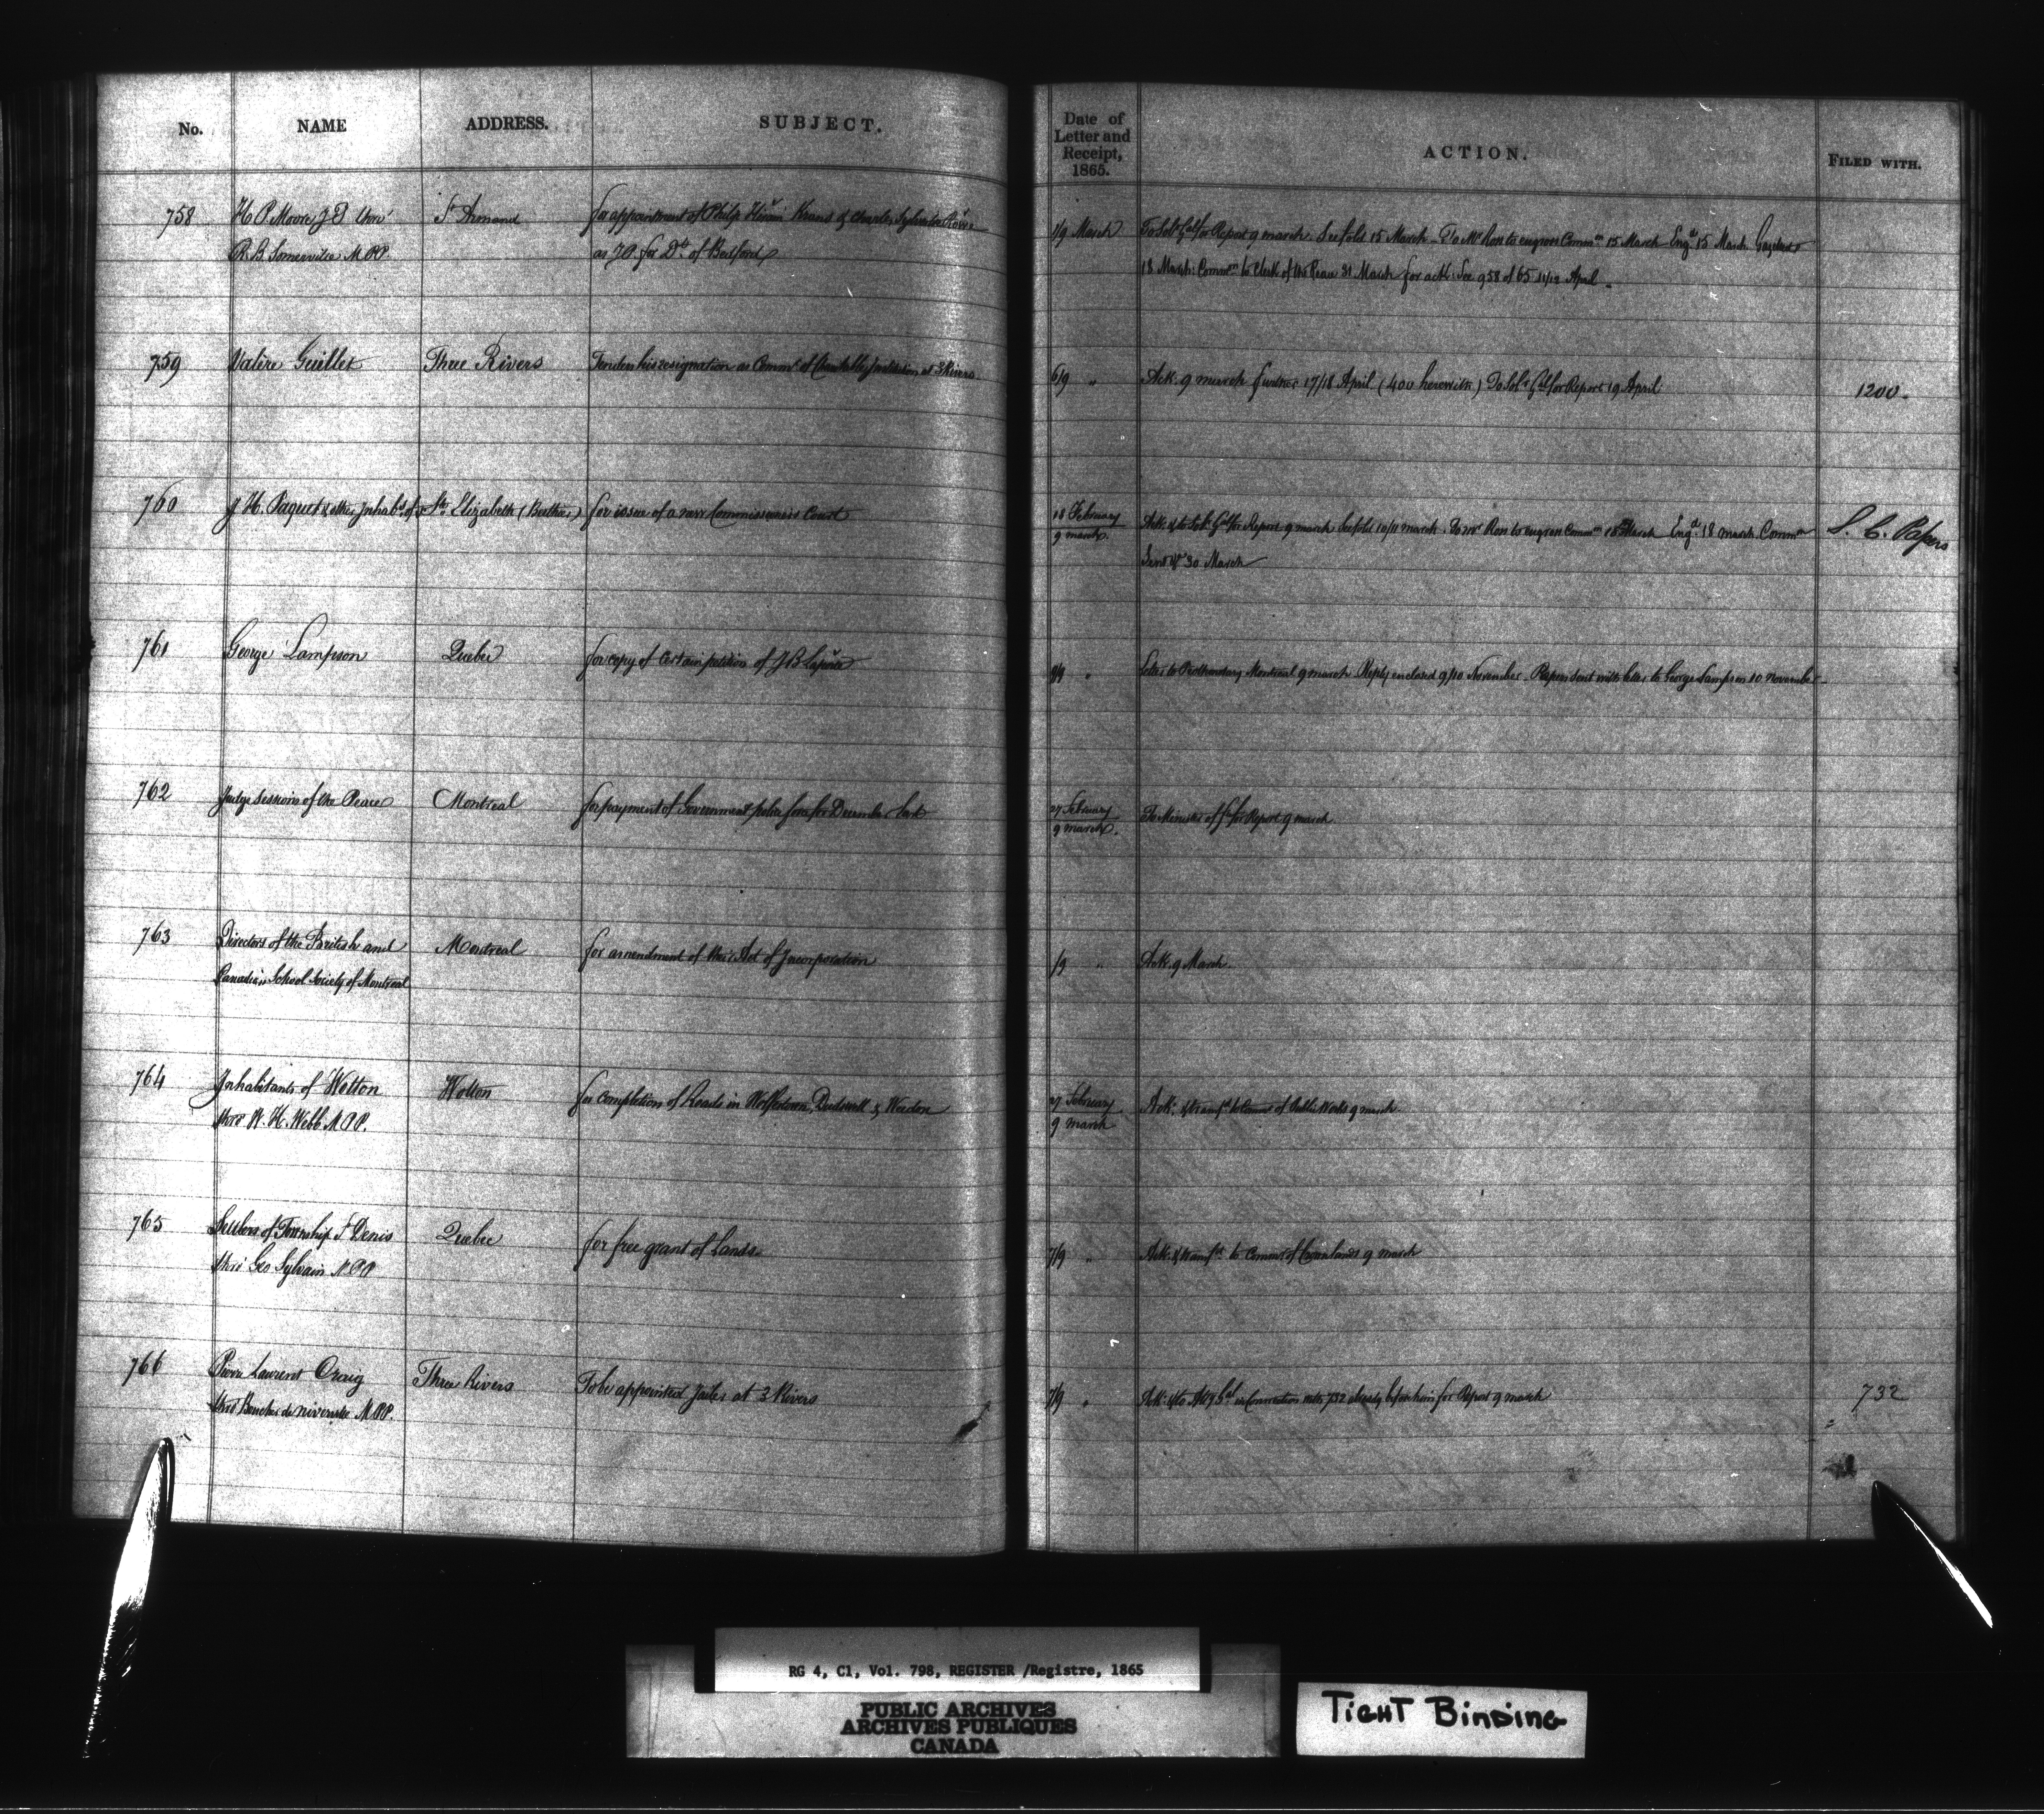 No. NAME ADDRESS. SUBJECT. Date of Letter and Receipt, 1865. ACTION. FILED WITH.
758 H. P. Moore J P thro' St Armand for appointment of Philip Hiram Krans & Charles Sylvester Rowe 1/9 March To Solr Genl for Report 9 march. See fold 15 March. To Mr Ross to engross Commn 15 March Engd 15 March Gazetted
R. B. Somerville M.P.P. as JP. for Dt. of Bedford 18 March: Commn to Clerk of the Peace 31 March for ack: See 958 of 65 11/12 April.
759 Valère Guillet Three Rivers Tenders his resignation as Commr of Charitable Institution at 3 Rivers 6/9 " Ack. 9 march further 17/18 April (400 herewith) To Solr Genl for Report 19 April 1200.
760 J H. Paquet & other Inhabts. of Ste. Elizabeth (Berthier) for issue of a new Commissioners Court 18 February Ack. & to Solr. Genl for Report. 9 march See fold 10/11 march. To Mr Ross to engross Commn 18 March Engd. 18 march. Commn L. C. Papers
9 march. Sent 30 March
761 George Lampson Quebec for copy of certain petition of J B 8/9 " Letter to Prothonotary Montreal 9 march Reply enclosed 9/10 November. Papers sent with letter to George Lampson 10 November
762 Judge Sessions of the Peace Montreal for payment of Government police force for December last 27 February To Minister of for Report 9 march
9 march.
763 Directors of the British and Montreal for amendment of their Act of Incorporation /9 " Ack. 9 March.
Canadian School Society of Montreal
764 Inhabitants of Wotton Wotton for completion of Roads in Wolfestown, Dudswell & Weedon 27 February Ack: & transfd to Commr of Public Works 9 march
thro' W. H. Webb M.P.P. 9 march
765 Settlers of Township St Denis Quebec for free grant of lands 7/9 " Ack. & transfd. to Commr of Crown lands 9 march
thro' Geo Sylvain M.P.P
766 Pierre Laurent Craig Three Rivers To be appointed Jailer at 3 Rivers 7/9 " Ack: & to Atty Genl. in Connection with 732 already before him for Report 9 march 732
thro' Boucher de Niverville M.P.P.
RG 4, C1, Vol. 798, REGISTER /Registre, 1865
PUBLIC ARCHIVES
ARCHIVES PUBLIQUES
CANADA
TIGHT BINDING